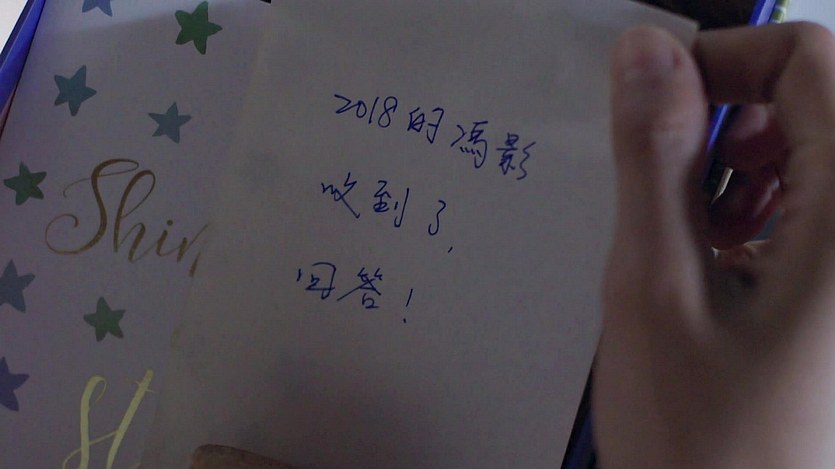 2018的馮影
收到了,
回答!
Shin
H